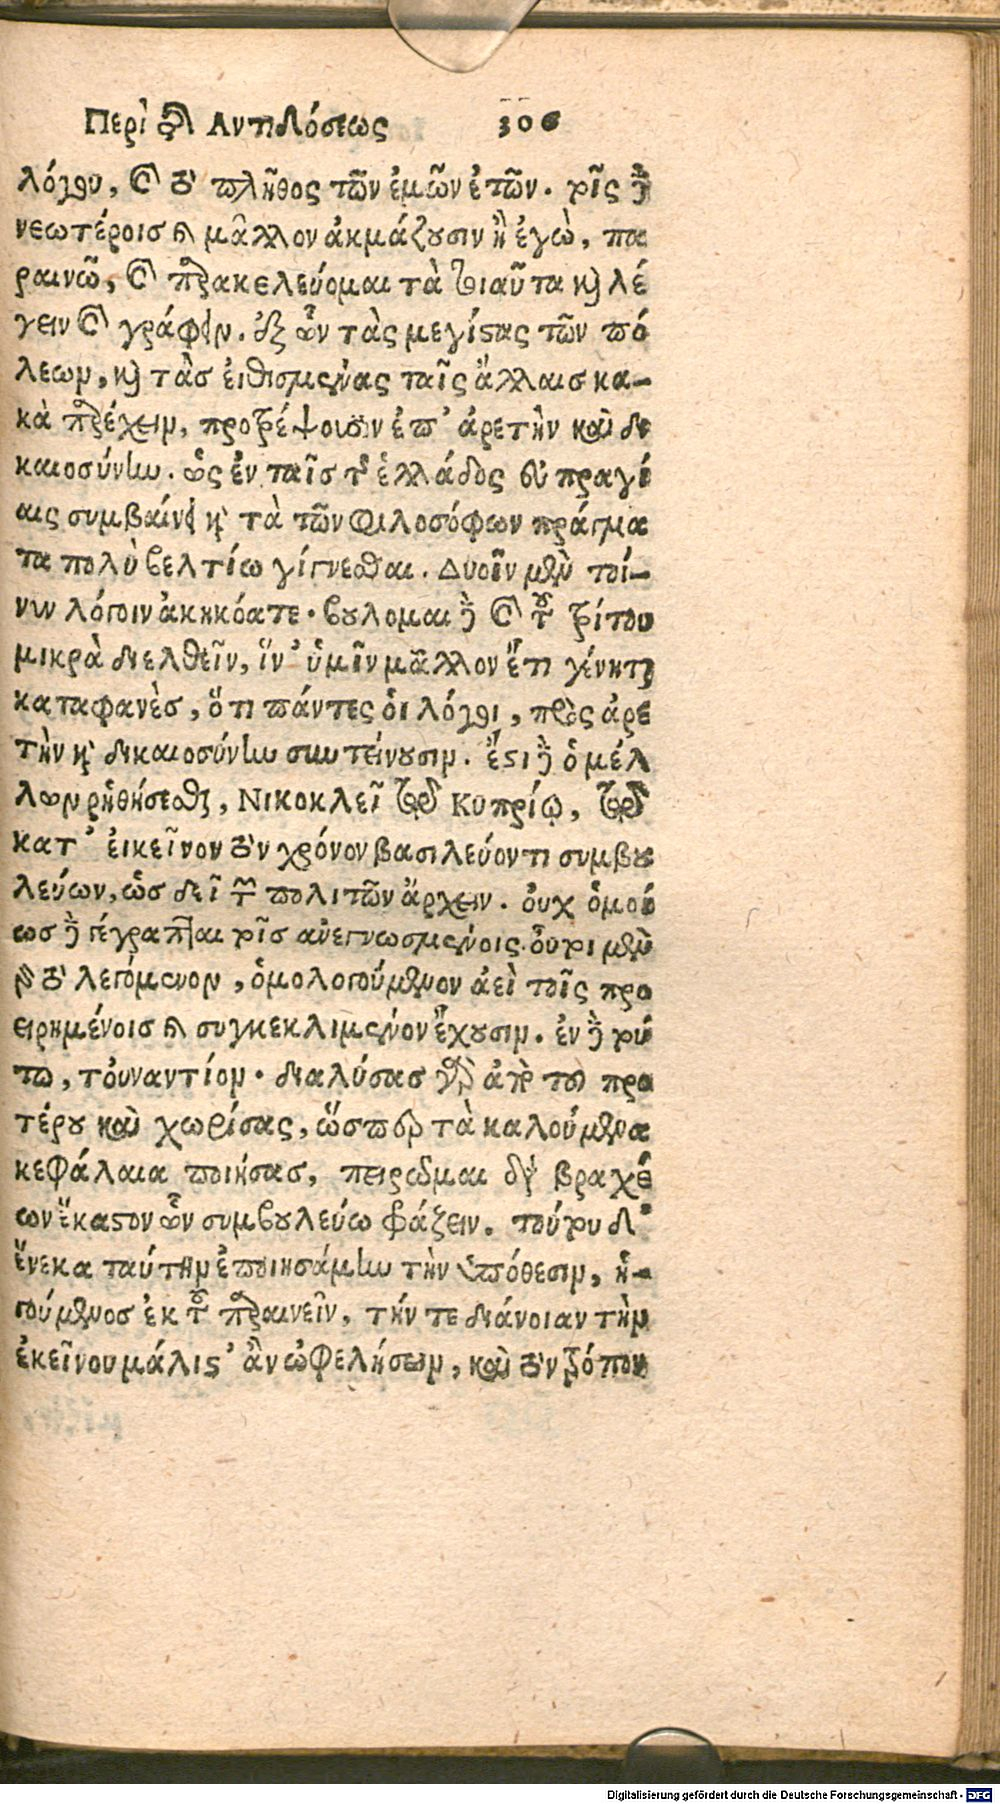 Περὶ τῆς Αντιδόσεως 306
λόγου, καὶ τὸ πλῆθος τῶν ἐμῶν ἐτῶν. τοῖς δὲ
νεωτέροισ καὶ μᾶλλον ἀκμάζουσιν ἢ ἐγὼ, πα
ραινῶ, καὶ παρακελεύομαι τὰ τοιαῦτα καὶ λέ
γειν καὶ γράφειν. ἐξ ὧν τὰς μεγίστας τῶν πό
λεων, καὶ τὰσ εἰθισμένας ταῖς ἄλλαισ κα-
κὰ παρέχειν, προτρέψουσιν ἐπ' ἀρετὴν καὶ δι
καιοσύνην. ὡς ἐν ταῖσ τῆς ἑλλάδος εὐπραγί
αις συμβαίνει καὶ τὰ τῶν φιλοσόφων πράγμα
τα πολὺ βελτίω γίγνεσθαι. Δυοῖν μὲν τοί-
νυν λόγοιν ἀκηκόατε. βούλομαι δὲ καὶ τοῦ τρίτου
μικρὰ διελθεῖν, ἵν' ὑμῖν μᾶλλον ἔτι γένηται
καταφανὲσ, ὅτι πάντες ὁι λόγοι, πρὸς ἀρε
τὴν καὶ δικαιοσύνην συντείνουσιν. ἔστι δὲ ὁ μέλ
λων ῥηθήσεσθαι, Νικοκλεῖ τῷ Κυπρίῳ, τῷ
κατ' ἐκεῖνον τὸν χρόνον βασιλεύοντι συμβου
λεύων, ὡσ δεῖ τῶν πολιτῶν ἄρχειν. ὀυχ ὁμοί
ωσ δὲ γέγραπται τοῖσ ἀνεγνωσμένοις. οὗτοι μὲν
γὰρ τὸ λεγόμενον, ὁμολογούμενον ἀεὶ τοῖς προ
ειρημένοισ καὶ συγκεκλιμένον ἔχουσιν. ἐν δὲ τού
τῳ, τὀυναντίον. διαλύσασ γὰρ ἀπὸ τοῦ προ
τέρου καὶ χωρίσας, ὥσπερ τὰ καλούμενα
κεφάλαια ποιήσασ, πειρῶμαι διὰ βραχέ
ων ἕκαστον ὧν συμβουλεύω φράζειν. τούτου δ'
ἕνεκα ταύτην ἐποιησάμην τὴν ὑπόθεσιν, ἡ-
γούμενοσ ἐκ τοῦ παραινεῖν, τήν τε διάνοιαν τὴν
ἐκείνου μάλιστ' ἂν ὠφελήσειν, καὶ τὸν τρόπον
Digitalisierung gefördert durch die Deutsche Forschungsgemeinschaft - DFG